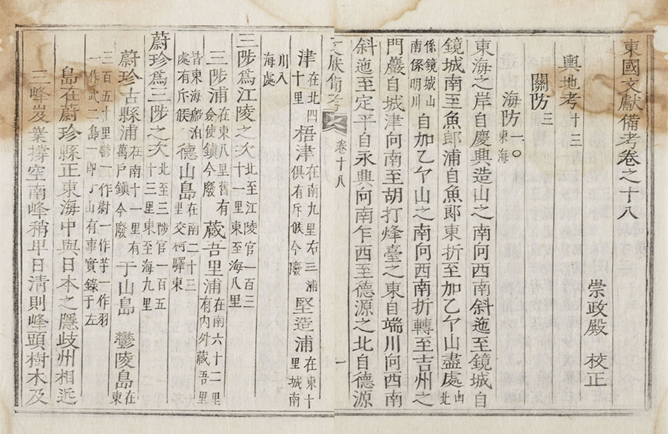 東國文獻備考卷之十八
崇政殿 校正
輿地考十三
關防三
海防一○東海
東海之岸自慶興造山之南向西南斜迤至鏡城自
鏡城南至魚郞浦自魚郞東折至加乙个山盡處山北
係鏡城山南係明川自加乙个山之南向西南折轉至吉州之
門巖自城津向南至胡打烽臺之東自端川向西南
斜迤至定平自永興向南乍西至德源之北自德源
文獻備考 卷十八 一
津在北四十里梧津在南九里右三浦俱有斥候今廢堅造浦在東十里城南
川入海處
三陟爲江陵之次北至江陵官一百三十一里東至海八里
三陟浦在東八里舊有僉使鎭今廢藏吾里浦在南六十二里有內外藏吾里
皆東海船泊處有斥候德山島在南二十三里交柯驛東
蔚珍爲三陟之次北至三陟官一百五十三里東至海九里
蔚珍古縣浦在南十一里有萬戶鎭今廢于山島 鬱陵島在東
三百五十里鬱一作蔚一作芋一作羽一作武二島一卽于山有事實錄于左
島在蔚珍縣正東海中與日本之隱歧州相近
三峰岌嶪撐空南峰稍卑日淸則峰頭樹木及